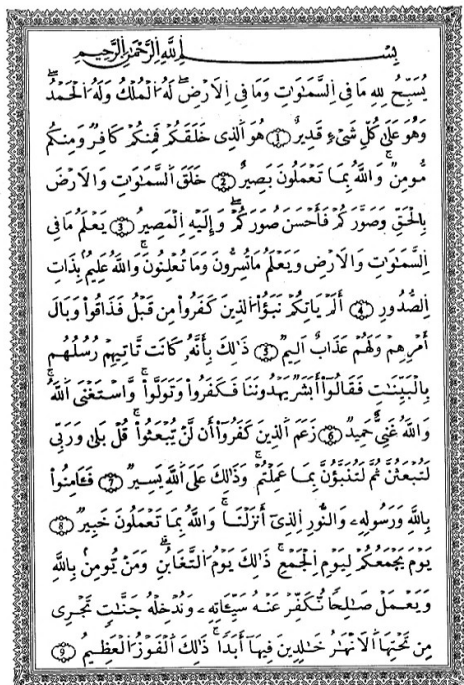 بِسْمِ اِللَّهِ اِلرَّحْمَٰنِ اِلرَّحِيمِ
يُسَبِّحُ لِلهِ مَا فِى اِلسَّمَٰوَٰتِ وَمَا فِى اِلَارْضِۖ لَهُ اُلْمُلْكُ وَلَهُ اُلْحَمْدُۖ
وَهُوَ عَلَىٰ كُلِّ شَىْءٍ قَدِيرٌ ١ هُوَ اَلذِى خَلَقَكُمْ فَمِنكُمْ كَافِرٌ وَمِنكُم
مُّومِنٌۚ وَاللَّهُ بِمَا تَعْمَلُونَ بَصِيرٌ ٢ خَلَقَ اَلسَّمَٰوَٰتِ وَالَارْضَ
بِالْحَقِّ وَصَوَّرَكُمْ فَأَحْسَنَ صُوَرَكُمْۖ وَإِلَيْهِ اِلْمَصِيرُ ٣ يَعْلَمُ مَا فِى
اِلسَّمَٰوَٰتِ وَالَارْضِ وَيَعْلَمُ مَا تُسِرُّونَ وَمَا تُعْلِنُونَۚ وَاللَّهُ عَلِيمٌ بِذَاتِ
اِلصُّدُورِ ٤ أَلَمْ يَاتِكُمْ نَبَؤُاْ اُلذِينَ كَفَرُواْ مِن قَبْلُ فَذَاقُواْ وَبَالَ
أَمْرِهِمْ وَلَهُمْ عَذَابٌ اَلِيمٌ ٥ ذَٰلِكَ بِأَنَّهُۥ كَانَت تَّاتِيهِمْ رُسُلُهُم
بِالْبَيِّنَٰتِ فَقَالُوٓاْ أَبَشَرٌ يَهْدُونَنَا فَكَفَرُواْ وَتَوَلَّواْۚ وَّاسْتَغْنَى اَللَّهُۚ
وَاللَّهُ غَنِىٌّ حَمِيدٌ ٦ زَعَمَ اَلذِينَ كَفَرُوٓاْ أَن لَّنْ يُّبْعَثُواْۚ قُلْ بَلَىٰ وَرَبِّى
لَتُبْعَثُنَّ ثُمَّ لَتُنَبَّؤُنَّ بِمَا عَمِلْتُمْۚ وَذَٰلِكَ عَلَى اَللَّهِ يَسِيرٌ ٧ فَـَٔامِنُواْ
بِاللَّهِ وَرَسُولِهِۦ وَالنُّورِ اِلذِىٓ أَنزَلْنَاۚ وَاللَّهُ بِمَا تَعْمَلُونَ خَبِيرٌ ٨
يَوْمَ يَجْمَعُكُمْ لِيَوْمِ اِلْجَمْعِۚ ذَٰلِكَ يَوْمُ اُلتَّغَابُنِۗ وَمَنْ يُّومِنۢ بِاللَّهِ
وَيَعْمَلْ صَٰلِحًا نُّكَفِّرْ عَنْهُ سَيِّـَٔاتِهِۦ وَنُدْخِلْهُ جَنَّٰتٍ تَجْرِى
مِن تَحْتِهَا اَلَانْهَٰرُ خَٰلِدِينَ فِيهَآ أَبَدًاۚ ذَٰلِكَ اَلْفَوْزُ اُلْعَظِيمُ ٩